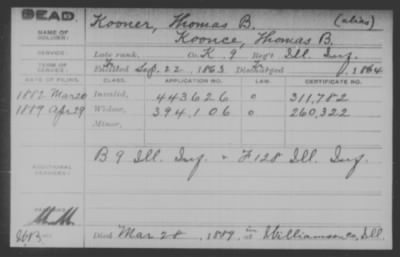 DEAD.
NAME OF SOLDIER: Kooner, Thomas B. (alias)
Koonce, Thomas B.
SERVICE: Late rank, Co. K, 9 Reg't Ill. Inf.
TERM OF SERVICE: Enlisted Sep. 22, 1863 Discharged , 1864
DATE OF FILING. CLASS. APPLICATION NO. LAW. CERTIFICATE NO.
1882 Mar 20 Invalid, 443626 0 311,782
1889 Apr 29 Widow, 394,106 0 260,322
Minor,
ADDITIONAL SERVICES: B 9 Ill. Inf. F 128 Ill. Inf.
Died Mar 28, 1889, at Williamson Co, Ill.